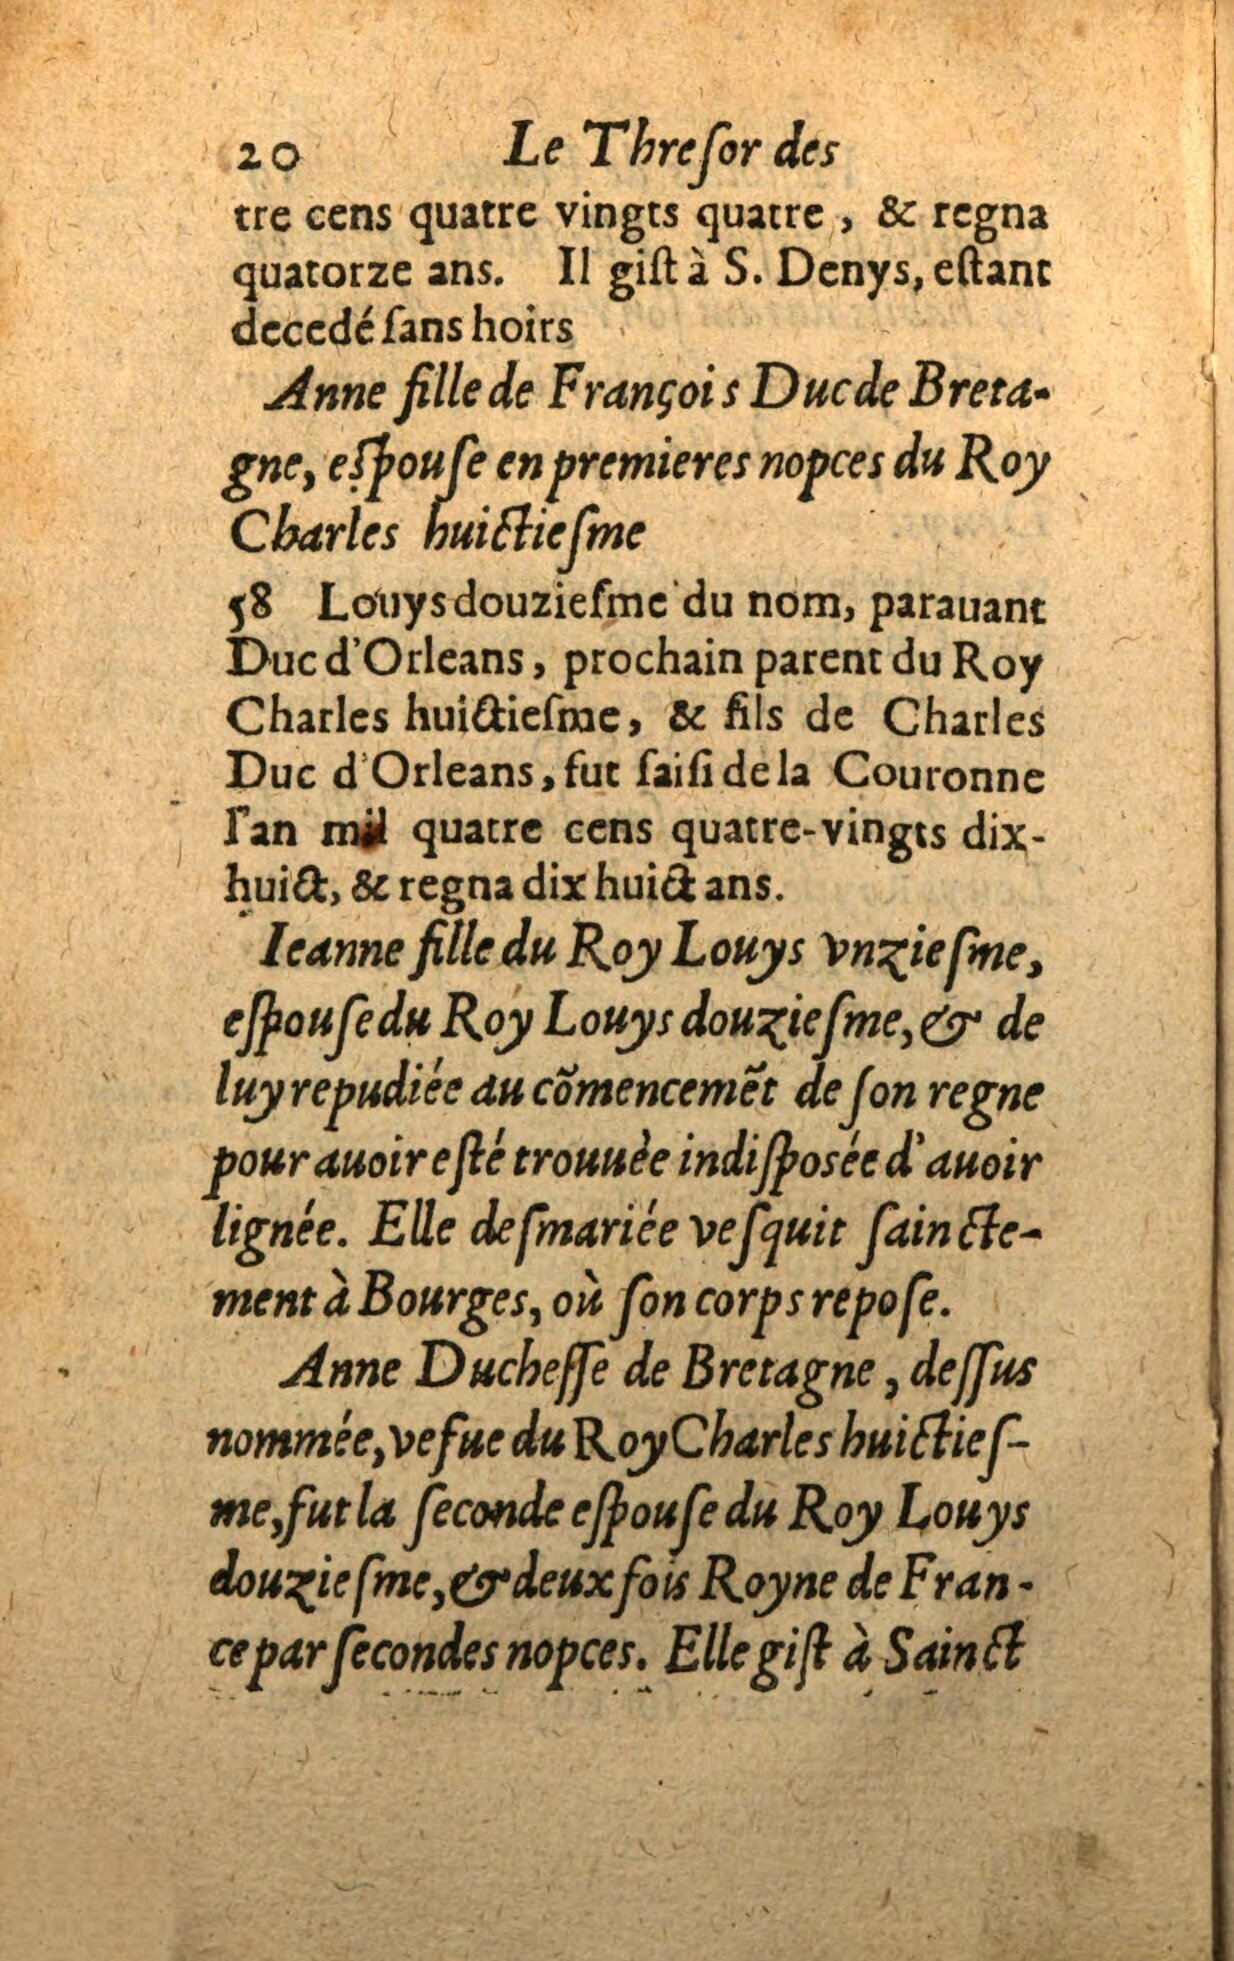 20 Le Threſor des
tre cens quatre vingts quatre, & regna
quatorze ans. Il giſt à S. Denys, eſtant
decedé ſans hoirs
Anne fille de François Duc de Breta-
gne, eſpouſe en premieres nopces du Roy
Charles huictieſme
58 Louys douzieſme du nom, parauant
Duc d'Orleans, prochain parent du Roy
Charles huictieſme, & fils de Charles
Duc d'Orleans, fut ſaiſi de la Couronne
l'an mil quatre cens quatre-vingts dix-
huict, & regna dix huict ans.
Ieanne fille du Roy Louys vnzieſme,
eſpouſe du Roy Louys douzieſme, & de
luy repudiée au cõmencemẽt de ſon regne
pour auoir eſté trouuèe indiſposée d'auoir
lignée. Elle deſmariée veſquit ſaincte-
ment à Bourges, où ſon corps repoſe.
Anne Ducheſſe de Bretagne, deſſus
nommée, vefue du Roy Charles huictieſ-
me, fut la ſeconde eſpouſe du Roy Louys
douzieſme, & deux fois Royne de Fran-
ce par ſecondes nopces. Elle giſt à Sainct